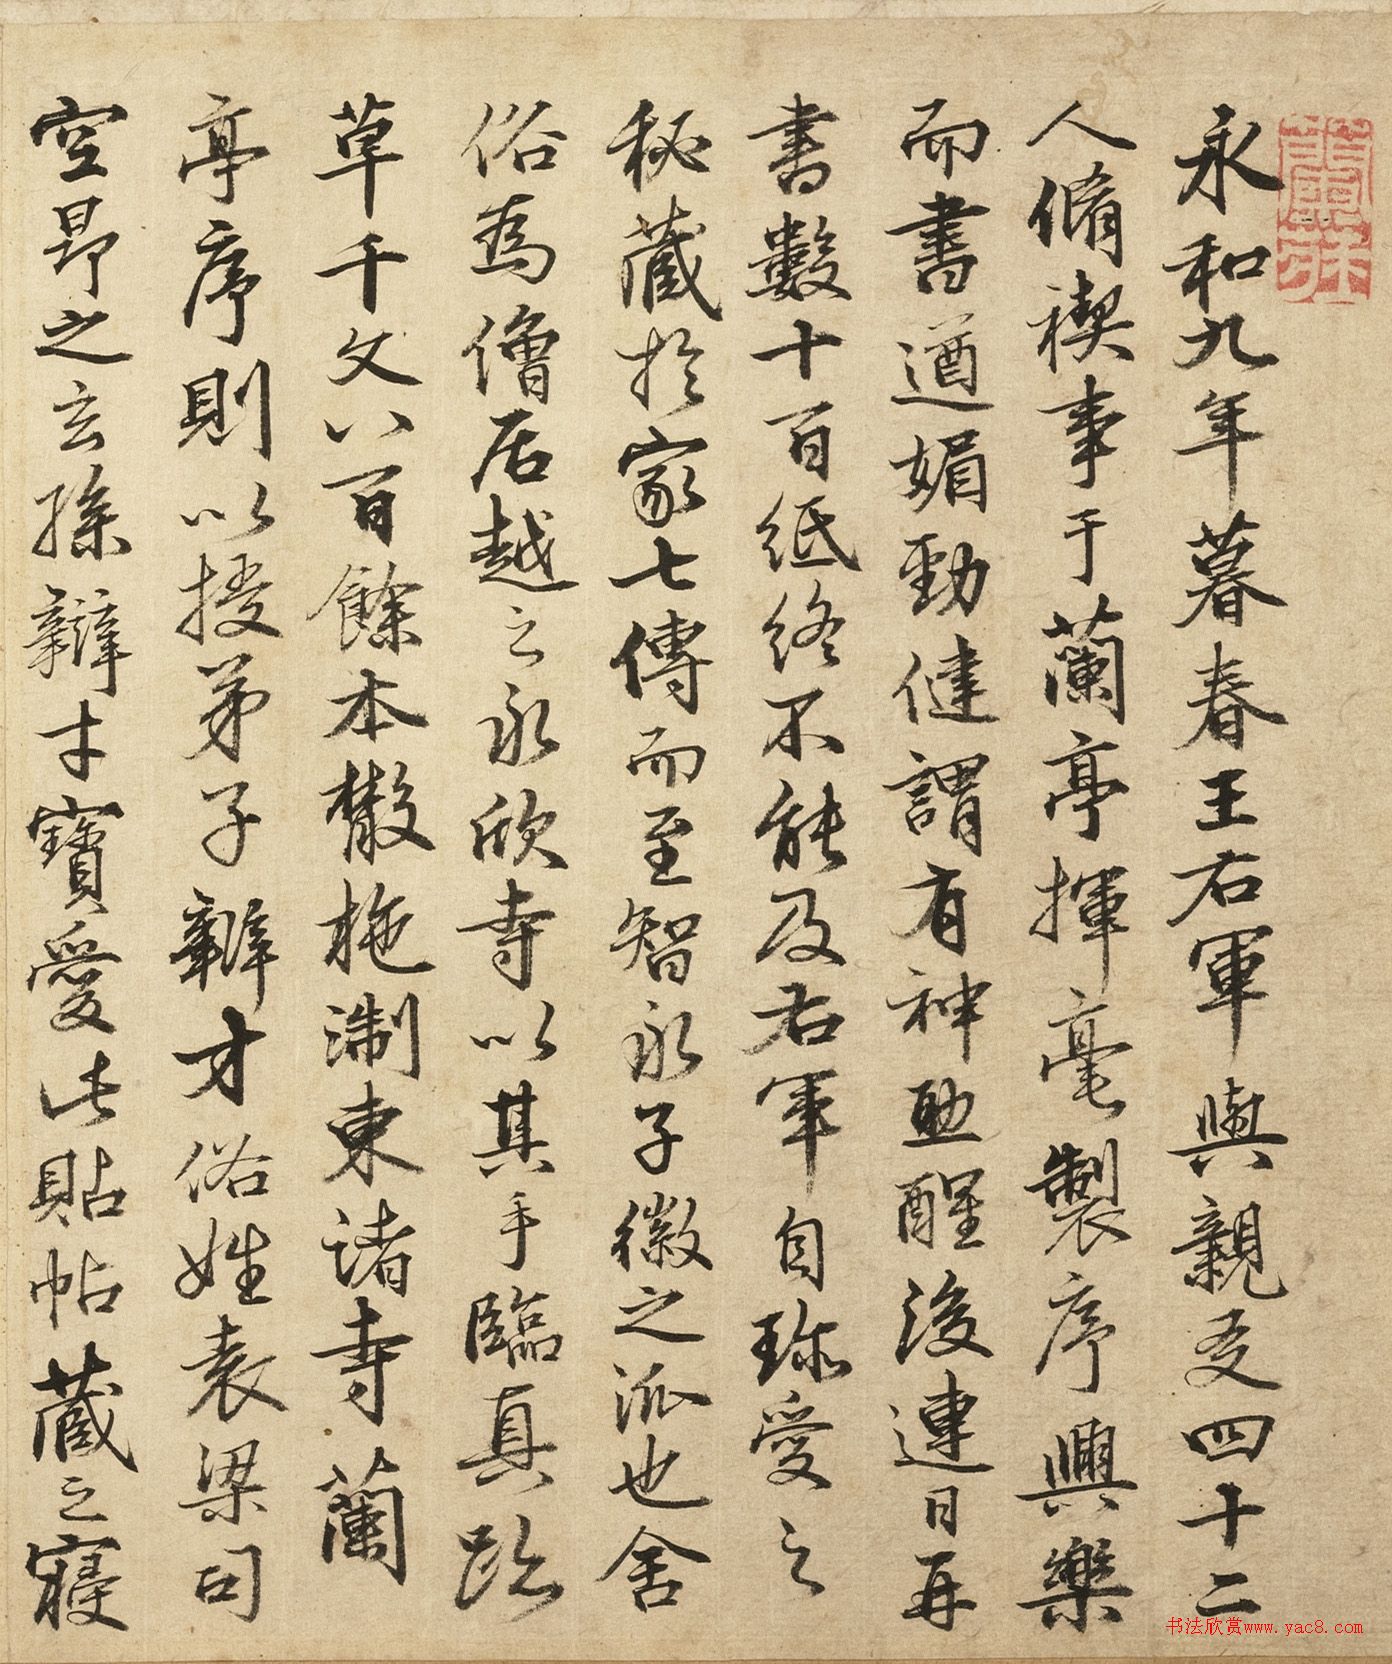 永和九年暮春王右軍與親友四十二
人脩禊事于蘭亭揮毫製序興樂
而書遒媚勁健謂有神助醒後連日再
書數十百紙終不能及右軍自珎愛之
秘藏於家七傳而至智永子徽之派也舍
俗為僧居越之永欣寺以其手臨真
草千文八百餘本散施淛東諸寺蘭
亭序則以授弟子辯才俗姓袁梁司
空昂之玄孫辯才寶愛此帖藏之寢
书法欣赏www.yac8.com